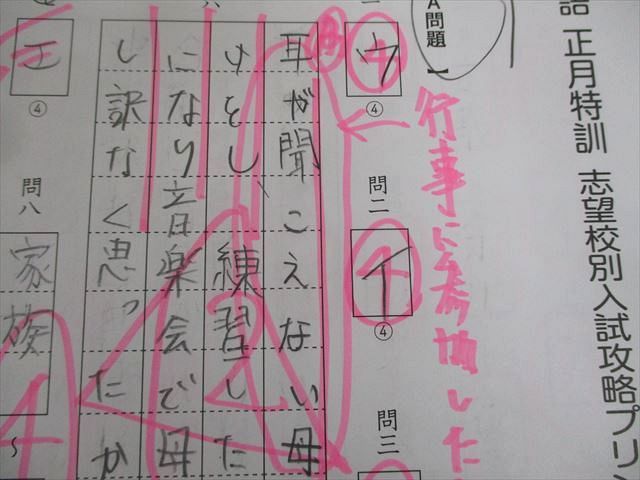 語 正月特訓 志望校別入試攻略プリ
A問題 】
ウ
④
問二
イ
④
問三
行事に参加した
耳が聞こえない母
けをとし、練習した
になり音楽会で母
し訳なく思ったか
エ
④
問八
家族